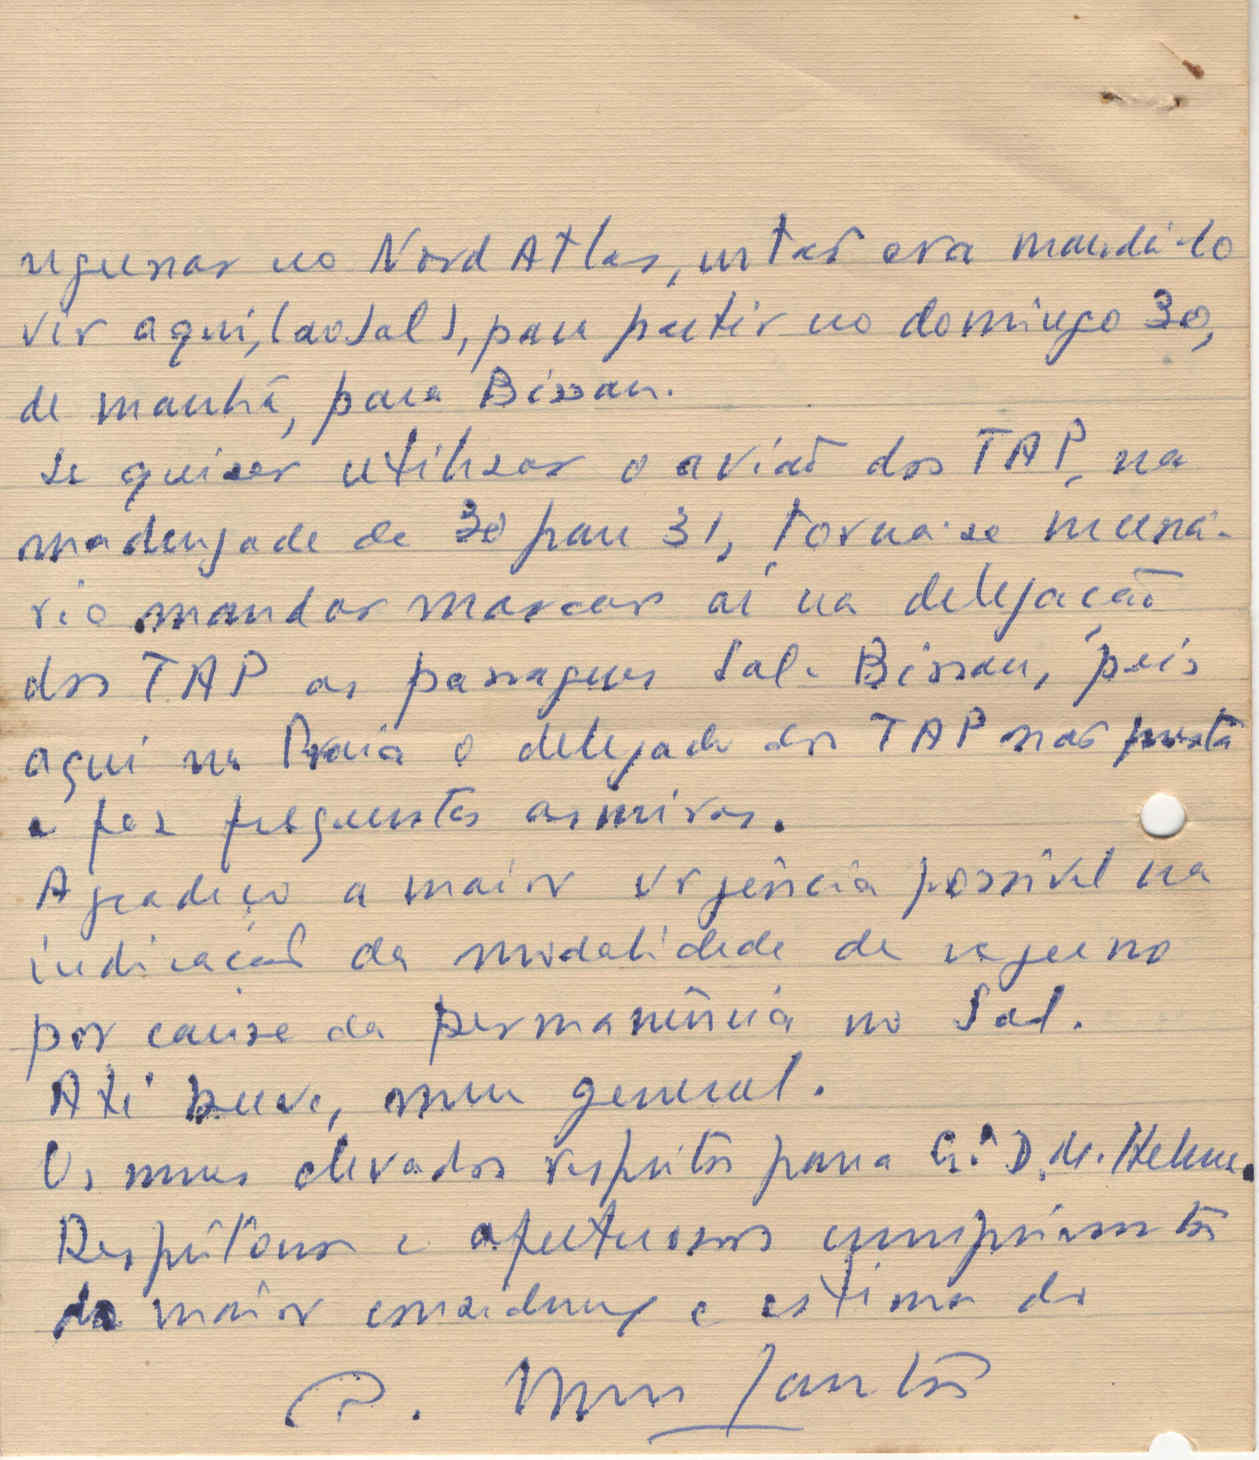 regressar no Nord Atlas, então era mandá-lo
vir aqui, (ao Sal), para partir no domingo 30,
de manhã, para Bissau.
Se quiser utilizar o avião dos TAP, na
madrugada de 30 para 31, torna-se necessá-
rio mandar marcar aí na delegação
dos TAP as passagens Sal-Bissau, pois
aqui na Praia o delegado dos TAP não presta
e faz frequentes asneiras.
Agradeço a maior urgência possível na
indicação da modalidade de regresso
por causa da permanência no Sal.
Até breve, meu general.
Os meus elevados respeitos para a Sr.ª D. M. Helena.
Respeitosos e afectuosos cumprimentos
da maior consideração e estima do
Santos